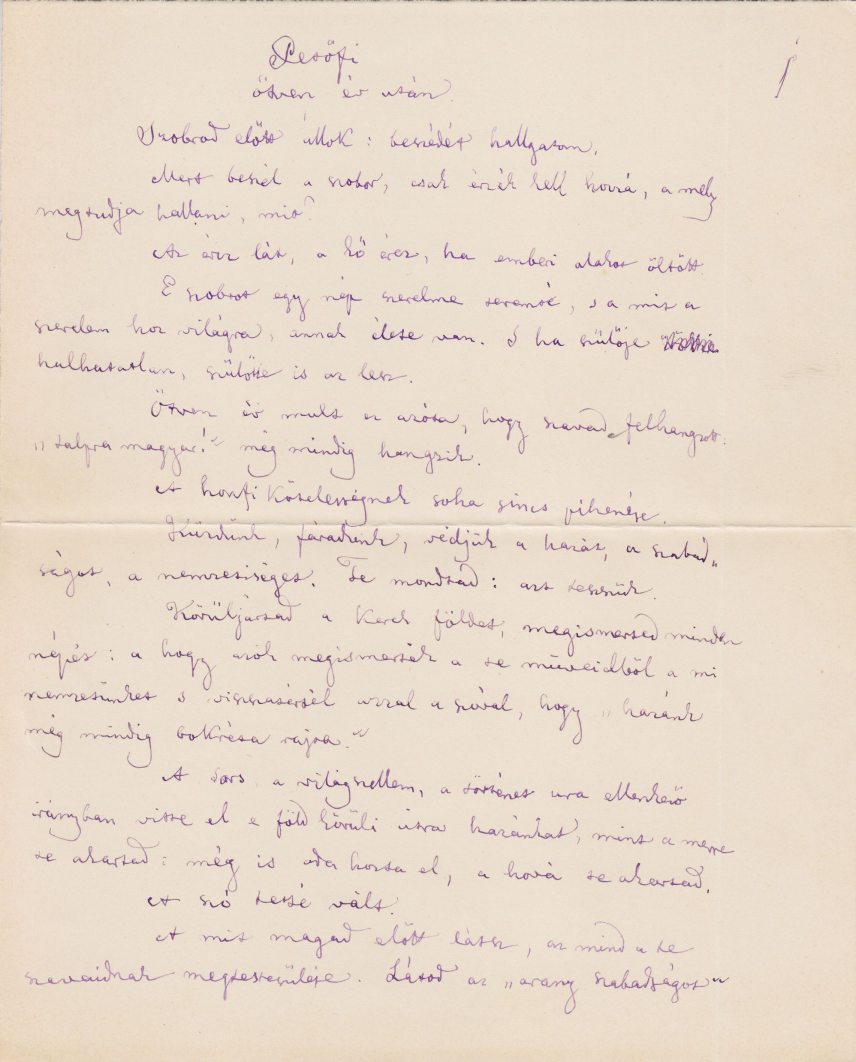 Petőfi
ötven év után.
1
Szobrod előtt állok: beszédét hallgatom.
Mert beszél a szobor, csak érzék kell hozzá, a mely
megtudja hallani, mit?
Az ércz lát, a kő érez, ha emberi alakot öltött.
E szobrot egy nép szerelme teremté, s a mit a
szerelem hoz világra, annak élete van. S ha szülője
halhatatlan, szülötte is az lesz.
Ötven év mult ez azóta, hogy szavad felhangzott:
„talpra magyar!“ még mindig hangzik.
A honfi kötelességnek soha sincs pihenése.
Küzdünk, fáradunk, védjük a hazát, a szabad„
ságot, a nemzetiséget. Te mondtad: azt teszszük.
Körüljártad a kerek földet, megismerted minden
népét: a hogy azok megismerték a te műveidből a mi
nemzetünket s visszatértél azzal a szóval, hogy „hazánk
még mindig bokréta rajta.“
A sors, a világszellem, a történet ura ellenkező
irányban vitte el e föld körüli útra hazánkat, mint a merre
te akartad: még is oda hozta el, a hová te akartad.
A szó testté vált.
A mit magad előtt látsz, az mind a te
szavaidnak megtestesülése. Látod az „arany szabadságot“